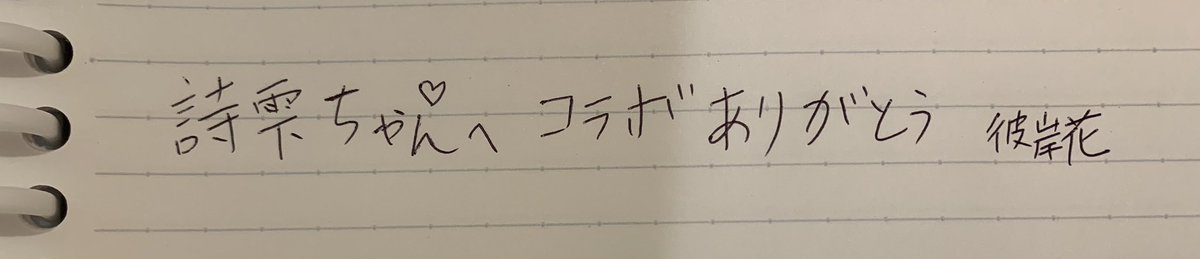 詩雫ちゃん♡へ コラボありがとう 彼岸花